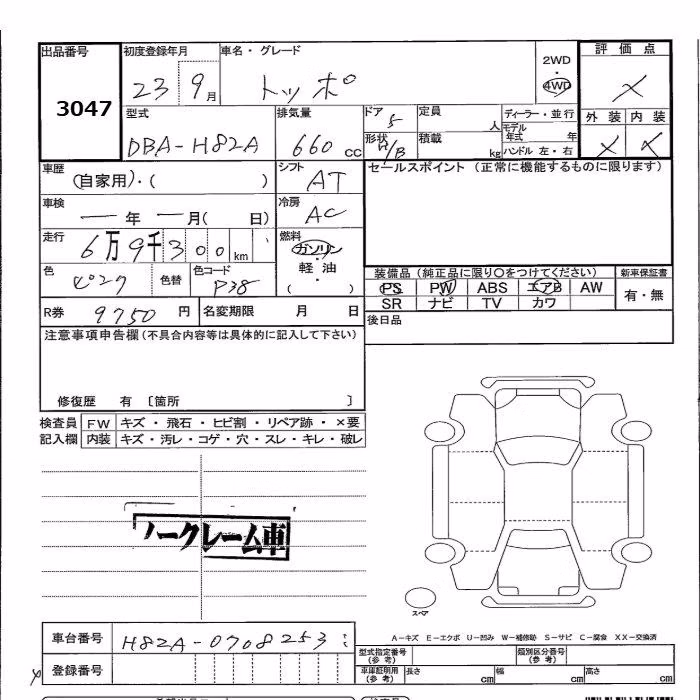 出品番号 初度登録年月 車名・グレード 2WD・4WD 評価点
3047 23 9月 トッポ ×
型式 排気量 ドア 5 定員 人 ディーラー・並行 外装 内装
DBA-H82A 660cc 形状 H/B 積載 kg モデル年式 年 ハンドル 左・右 × ×
車歴 (自家用)・( ) シフト AT セールスポイント (正常に機能するものに限ります)
車検 ー年ー月( 日) 冷房 AC
走行 6万9千300km 燃料 ガソリン・軽油 ( )
色 ピンク 色替 色コード P38
装備品 (純正品に限り〇をつけてください) 新車保証書
PS PW ABS エアB AW 有・無
SR ナビ TV カワ
R券 9750円 名変期限 月 日 後日品
注意事項申告欄(不具合内容等は具体的に記入して下さい)
修復歴 有 〔箇所 〕
検査員 FW キズ・飛石・ヒビ割・リペア跡・×要
記入欄 内装 キズ・汚レ・コゲ・穴・スレ・キレ・破レ
ノークレーム車
スペア
A-キズ E-エクボ U-凹み W-補修跡 S-サビ C-腐食 XX-交換済
車台番号 H82A-0708253
型式指定番号(参考) 類別区分番号(参考)
登録番号 車庫証明用(参考) 長さ cm 幅 cm 高さ cm